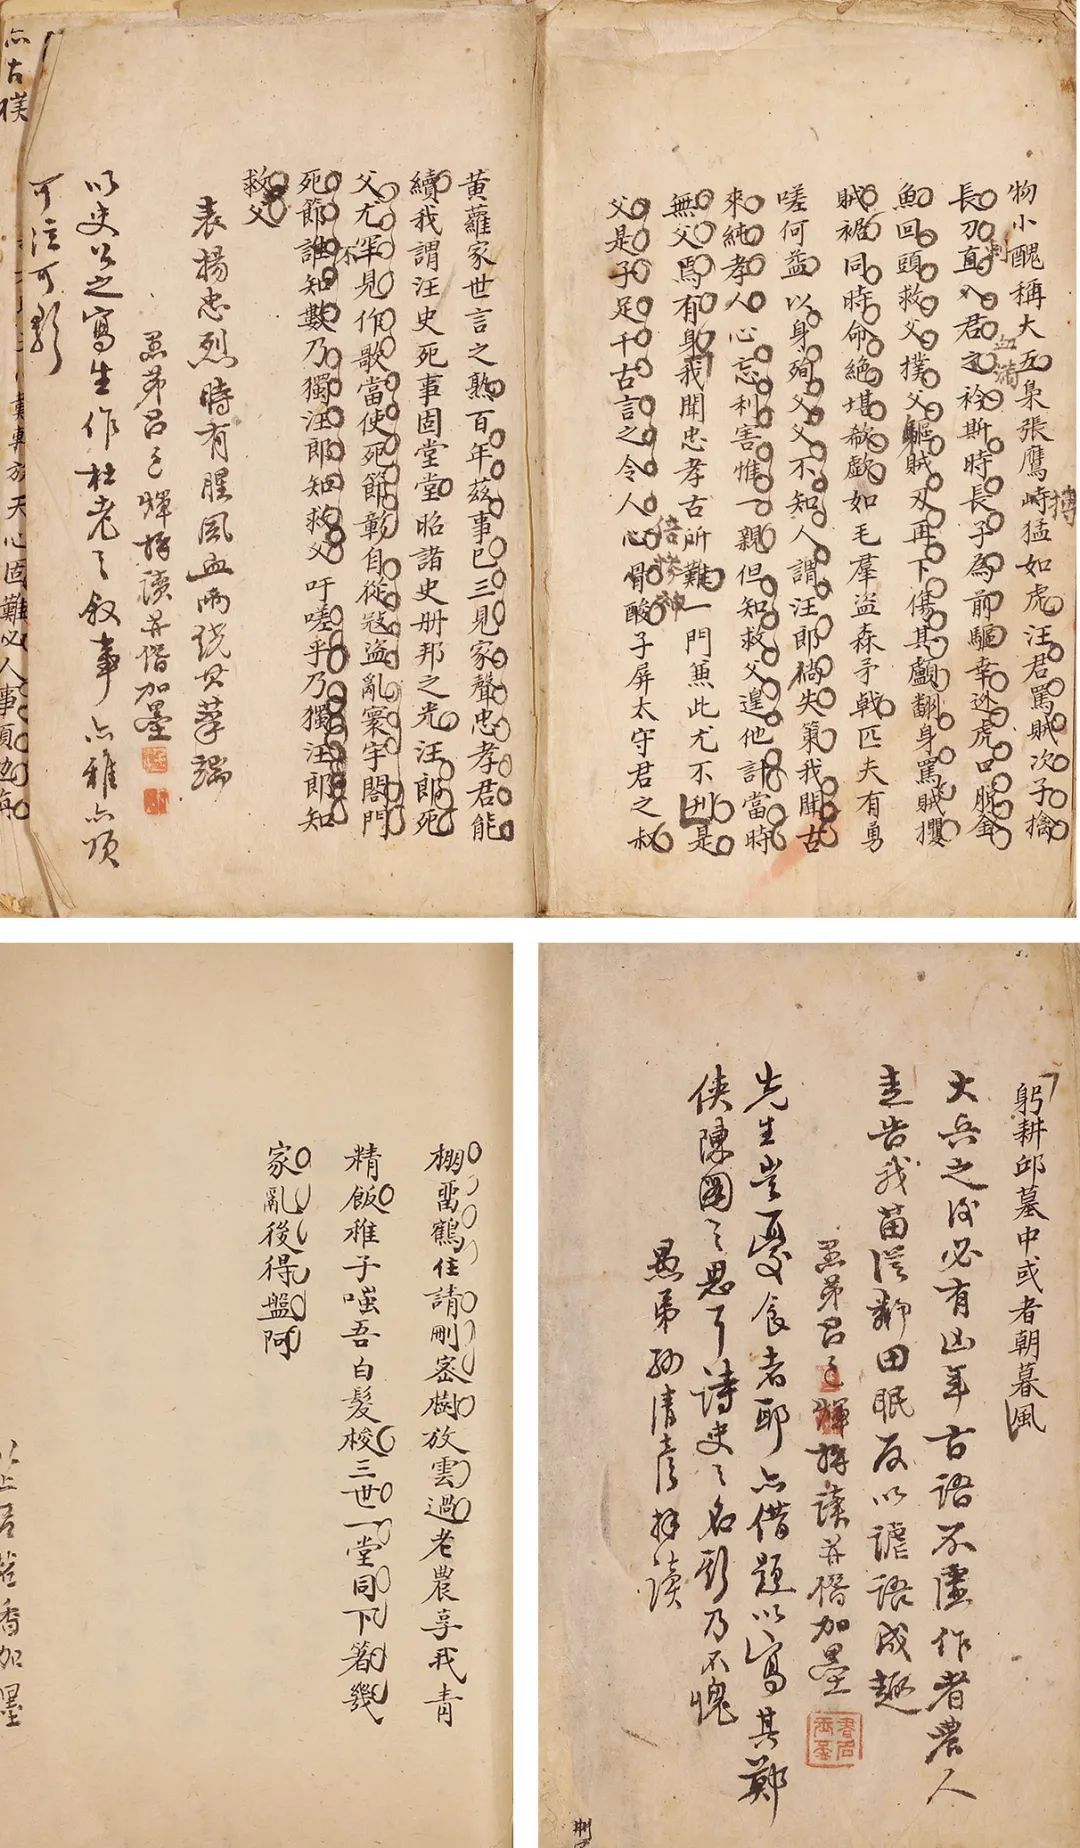 物小醜稱大五梟張鷹峙猛如虎汪君罵賊次子擒
長刀直入君之衿斯時長子為前驅幸迯虎口脫金
魚回頭救父撲父軀賊刃再下傷其顱翻身罵賊攖
賊裾同時命絕堪欷歔如毛羣盜森矛戟匹夫有勇
嗟何益以身殉父父不知人謂汪郎徜失策我聞古
來純孝人心忘利害惟一親但知救父遑他計當時
無父焉有身我聞忠孝古所難一門兼此尤不刊是
父是子足千古言之令人心骨酸子屏太守君之叔
搏
血滴
黃蘿家世言之熟百年茲事已三見家聲忠孝君能
續我謂汪史死事固堂堂昭諸史册邦之光汪郎死
父尤罕見作歌當使死節彰自從寇盜亂寰宇閤門
死節誰知數乃獨汪郎知救父吁嗟乎乃獨汪郎知
救父
表揚忠烈時有腥風血雨繞其筆端
愚弟呂 輝拜讀并僭加墨
以史公之寫生作杜老之敘事亦雅亦頌
可泣可歌
亦古樸
天心固難必人事須
躬耕邱墓中或者朝暮風
大兵之後必有凶年古語不虛作者農人
走告我苗從靜田眠反以謔語成趣
愚弟呂 輝拜讀并僭加墨
先生豈憂食者耶亦借題以寫其鄭
俠陳圖之思耳詩史之名彰乃不愧
愚弟孫清彥拜讀
棚畱鶴住請刪密樹放雲過老農享我青
精飯稚子嗤吾白髮梭三世一堂同下箸幾
家亂後得盤阿
以上呂 香加墨